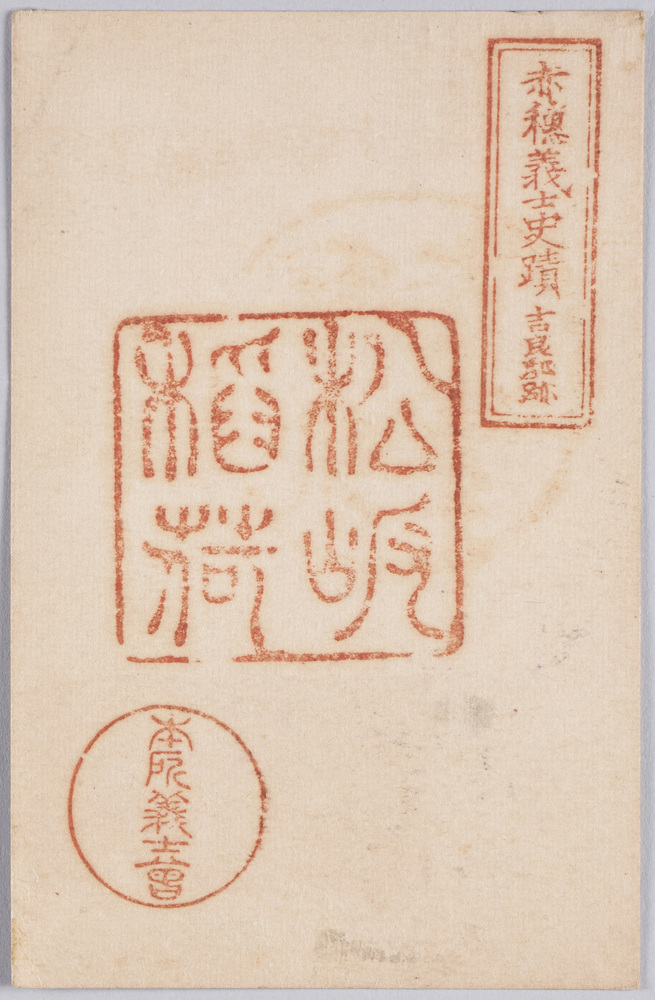 赤穗義士史蹟 吉良邸跡
松坂
稻荷
本所義士會